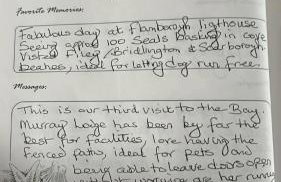 Favorite Memories:
Fabulous day at flamborough lighthouse
Seeing approx 100 Seals basking in cove
Visited Filey, Bridlington & Scarborough
beaches, ideal for letting dog run free.
Messages:
This is our third visit to the Bay.
Murray Lodge has been by far the
best for facilities, love having the
fenced patio, ideal for pets (and
being able to leave doors open
without worrying are her running